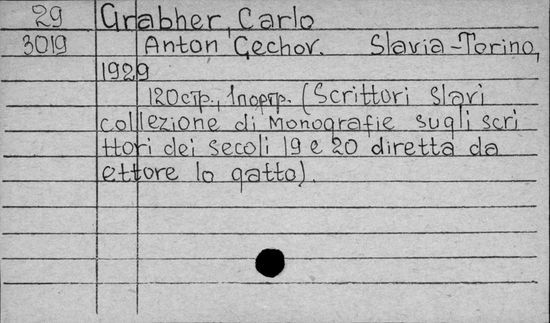 29 Grabher, Carlo
3019 Anton Cechov. Slavia-Torino,
1929
120стр., 1портр. (Scrittori slavi
collezione di monografie sugli scri
ttori dei secoli 19 e 20 diretta da
ettore lo gatto).